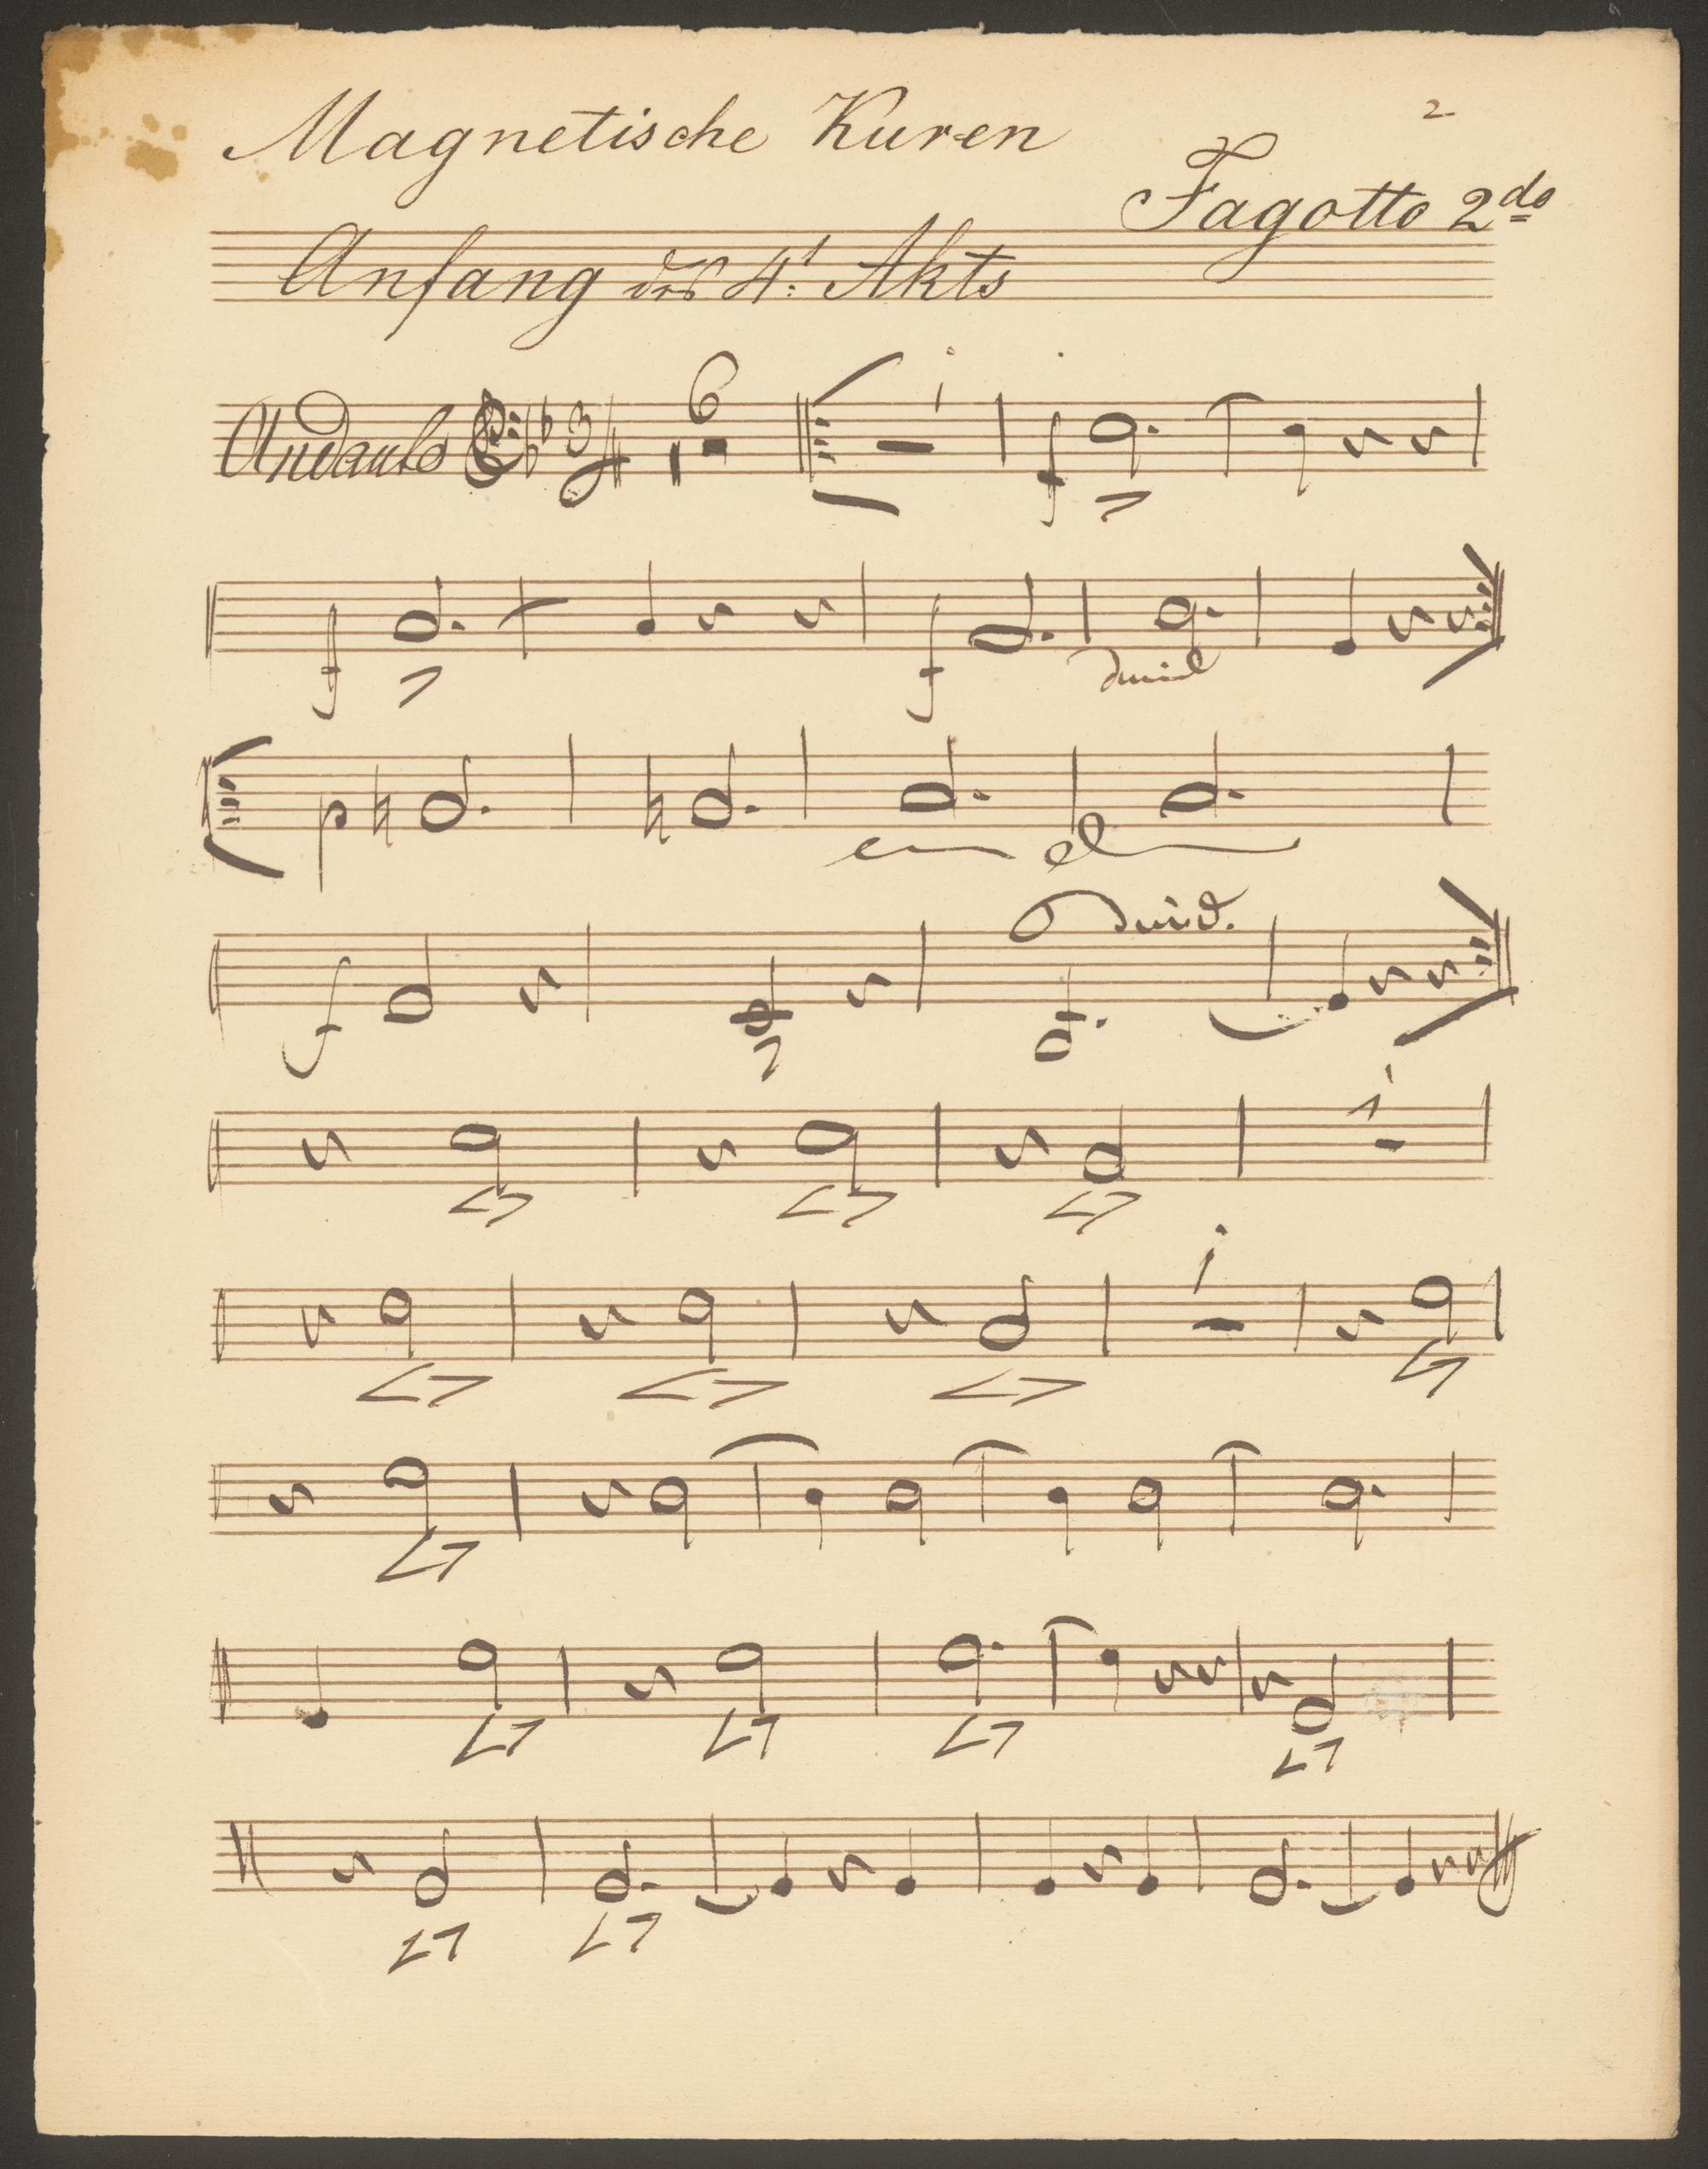 2
Magnetische Kuren
Fagotto 2do
Anfang des 4t Akts
Andante 3 6 1
f
f f dimi
p cres
f dimi.
1
1